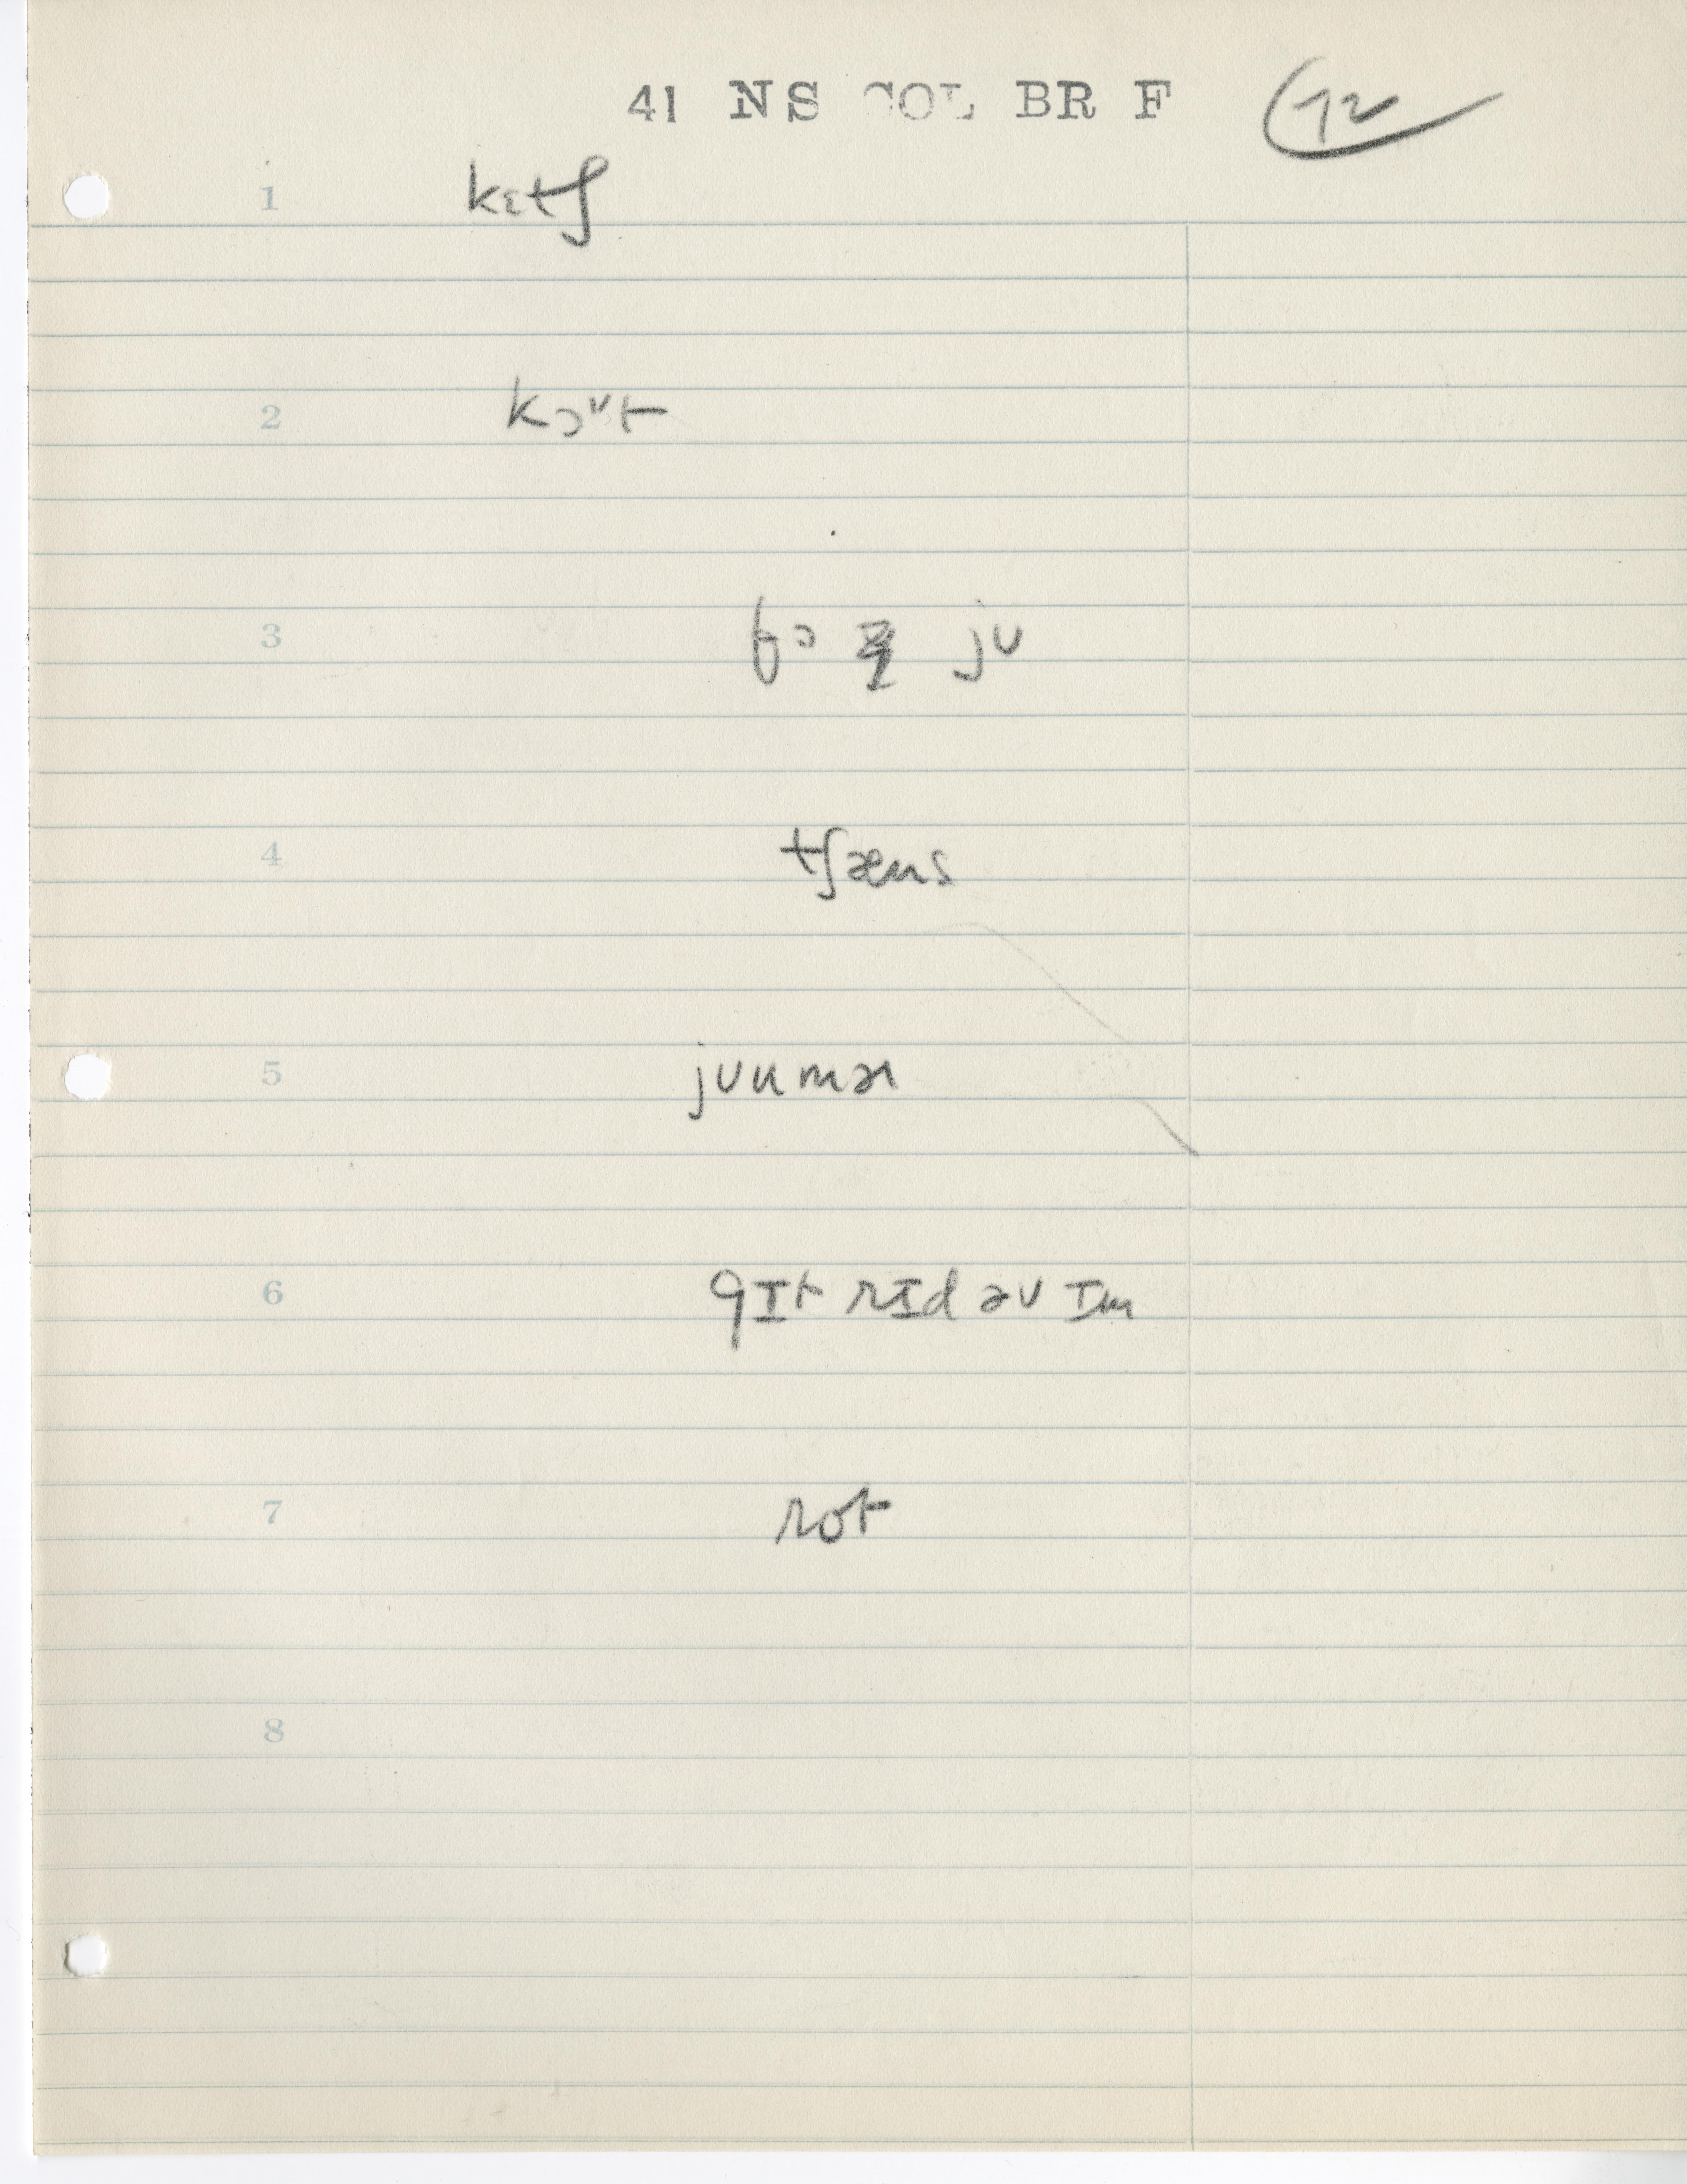 41 NS COL BR F 72
1 kɛtʃ
2 kɔʊt
3 ju
4 tʃæns
5 jumɚ
6 gɪt rɪd əv ɪm
7 rot
8